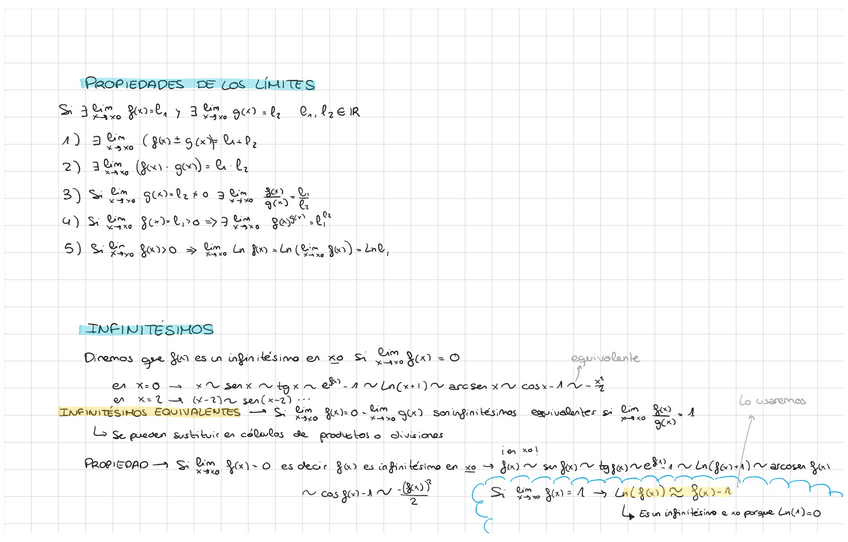 PROPIEDADES DE LOS LÍMITES
Si ∃ lim x→x0 f(x)=l₁ y ∃ lim x→x0 g(x)=l₂ l₁, l₂ ∈ IR
1) ∃ lim x→x0 (f(x) ± g(x))= l₁+l₂
2) ∃ lim x→x0 (f(x) · g(x)) = l₁ · l₂
3) Si lim x→x0 g(x)=l₂ ≠ 0 ∃ lim x→x0 f(x)/g(x) = l₁/l₂
4) Si lim x→x0 f(x)=l₁>0 => ∃ lim x→x0 f(x)^g(x) = l₁^l₂
5) Si lim x→x0 f(x)>0 => lim x→x0 Ln f(x) = Ln(lim x→x0 f(x)) = Ln l₁
INFINITÉSIMOS
Diremos que f(x) es un infinitésimo en x0 si lim x→x0 f(x) = 0
equivalente
en x=0 → x ~ sen x ~ tg x ~ e^f(x) - 1 ~ Ln(x+1) ~ arcsen x ~ cos x - 1 ~ -x²/2
en x=2 → (x-2) ~ sen(x-2) ...
Lo usaremos
INFINITÉSIMOS EQUIVALENTES → Si lim x→x0 f(x)=0 = lim x→x0 g(x) son infinitésimos equivalentes si lim x→x0 f(x)/g(x) = 1
↳ Se pueden sustituir en cálculos de productos o divisiones
¡en x0!
PROPIEDAD → Si lim x→x0 f(x)=0 es decir f(x) es infinitésimo en x0 → f(x) ~ sen f(x) ~ tg f(x) ~ e^f(x) - 1 ~ Ln(f(x)+1) ~ arcosen f(x)
~ cos f(x) - 1 ~ -(f(x))²/2
Si lim x→x0 f(x) = 1 → Ln(f(x)) ≈ f(x) - 1
↳ Es un infinitésimo e x0 porque Ln(1)=0